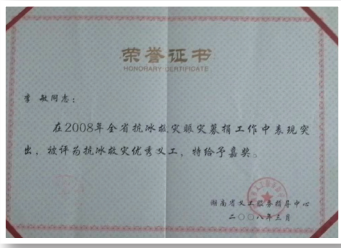 荣誉证书
HONORARY CERTIFICATE
李敏同志:
在2008年全省抗冰救灾赈灾募捐工作中表现突
出，被评为抗冰救灾优秀义工，特给予嘉奖。
湖南省义工服务指导中心
二〇〇八年三月